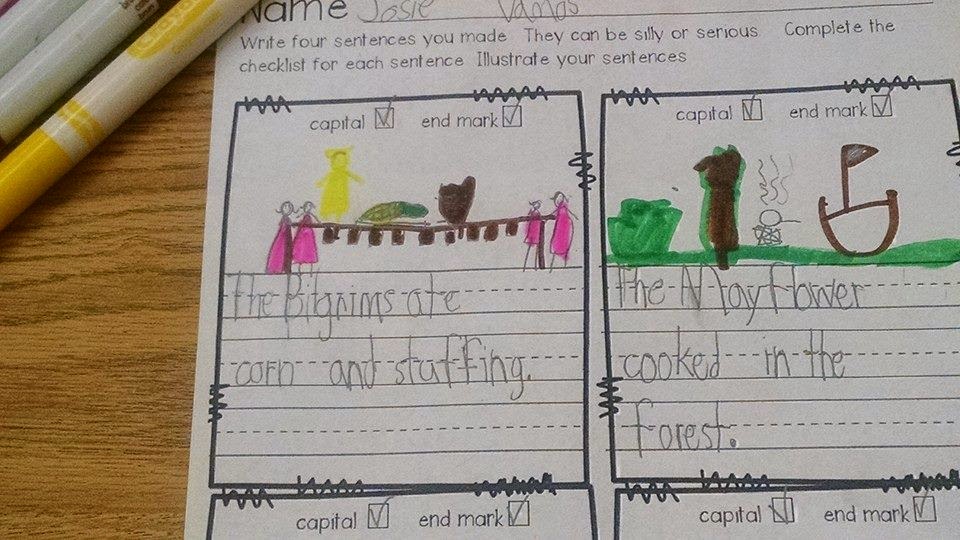 Name Josie
Write four sentences you made They can be silly or serious Complete the
checklist for each sentence Illustrate your sentences
capital end mark
The Pilgrims ate
corn and stuffing.
capital end mark
The Mayflower
cooked in the
forest.
capital end mark
capital end mark